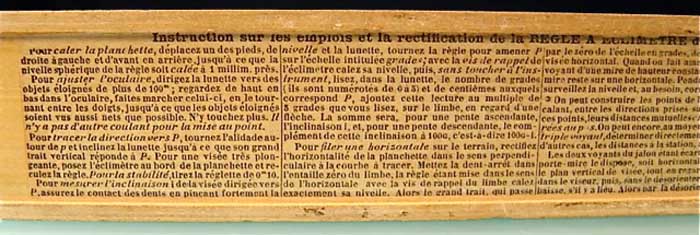 Instruction sur les emplois et la rectification de la REGLE A ECLIMETRE
Pour caler la planchette, déplacez un des pieds, de
droite à gauche et d'avant en arrière, jusqu'à ce que la
nivelle sphérique de la règle soit calée à 1 millim. près.
Pour ajuster l'oculaire, dirigez la lunette vers des
objets éloignés de plus de 100m; regardez de haut en
bas dans l'oculaire, faites marcher celui-ci, en le tour-
nant entre les doigts, jusqu'à ce que les objets éloignés
soient vus aussi nets que possible. N'y touchez plus. Il
n'y a pas d'autre coulant pour la mise au point.
Pour tracer la direction vers P, tournez l'alidade au-
tour de p et inclinez la lunette jusqu'à ce que son grand
trait vertical réponde à P. Pour une visée très plon-
geante, posez l'éclimètre au bord de la planchette et re-
culez la règle. Pour la stabilité, tirez la réglette de 0m10.
Pour mesurer l'inclinaison i de la visée dirigée vers
P, assurez le contact des dents en pinçant fortement la
nivelle et la lunette, tournez la règle pour amener P
sur l'échelle intitulée grades; avec la vis de rappel de
l'éclimètre calez sa nivelle, puis, sans toucher à l'ins-
trument, lisez, dans la lunette, le nombre de grades
(ils sont numérotés de 0 à 5) et de centièmes auxquels
correspond P, ajoutez cette lecture au multiple de
5 grades que vous lisez, sur le limbe, en regard d'une
flèche. La somme sera, pour une pente ascendante,
l'inclinaison i, et, pour une pente descendante, le com-
plément de cette inclinaison à 100G, c'est-à-dire 100G-i.
Pour filer une horizontale sur le terrain, rectifiez
l'horizontalité de la planchette dans le sens perpendi-
culaire à la courbe à tracer. Mettez la dent-arrêt dans
l'entaille zéro du limbe, la règle étant mise dans le sens
de l'horizontale avec la vis de rappel du limbe calez
exactement sa nivelle. Alors le grand trait, qui passe
par le zéro de l'échelle en grades,
visée horizontal. Quand on fait
voyant d'une mire de hauteur
mire reste sur une horizontale.
surveillez la nivelle et, au besoin,
On peut construire les points
evalant, entre les directions prises
ces points, leurs distances
rées au p. On peut encore, au
triple voyant, déterminer directement
d'autres cas, les distances à la station,
Les deux voyants du jalon étant
porte-mire le dispose, soit horizontalement
le plan vertical de visée, tout en
dans le viseur, puis, sans le
baisse, s'il y a lieu. Alors par la